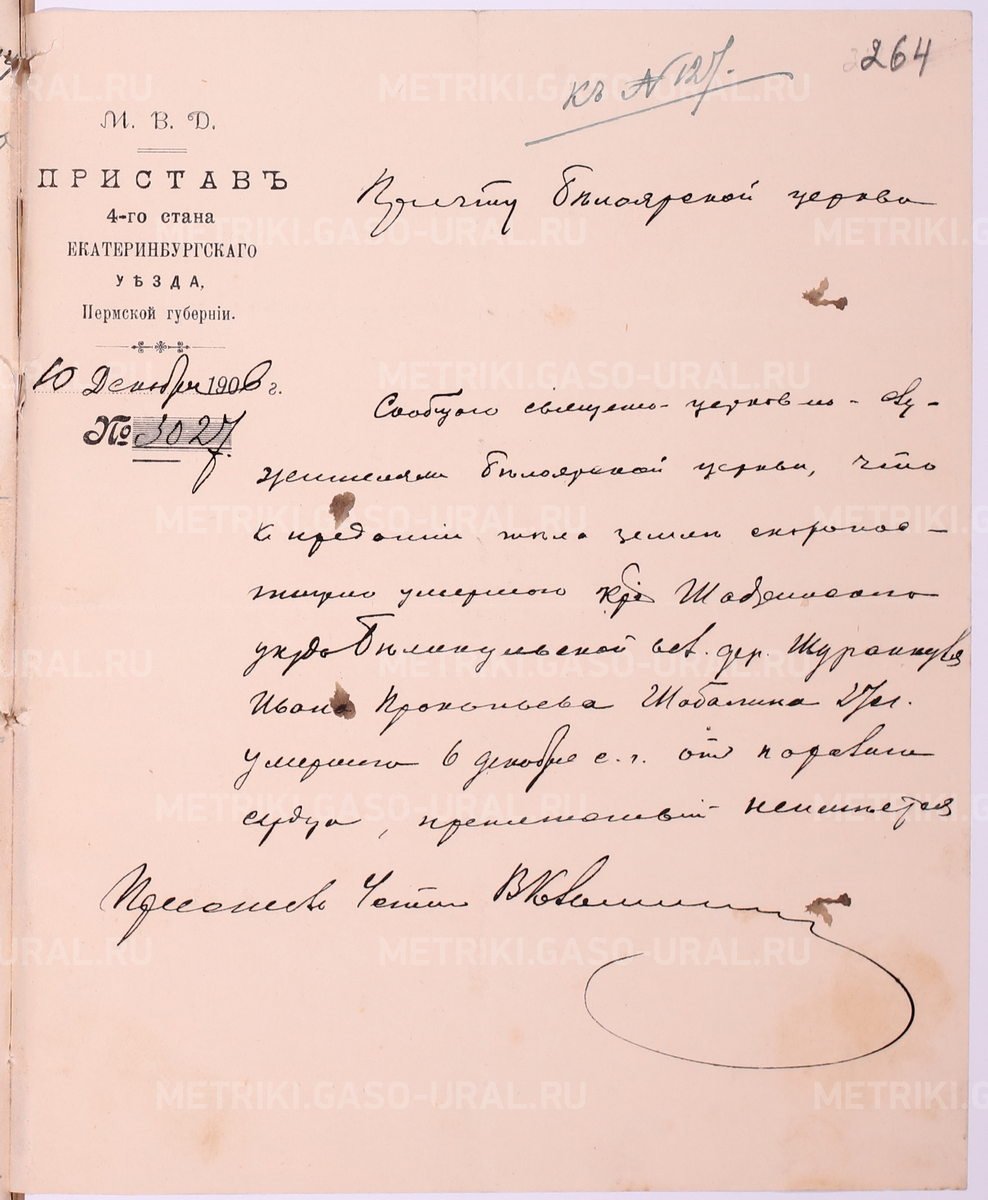 264
къ N 127.
М. В. Д.
ПРИСТАВЪ
4-го стана
ЕКАТЕРИНБУРГСКАГО
УѢЗДА,
Пермской губерніи.
10 Декабря 1906 г.
№ 3027.
Причту Бѣлоярской церкви
Сообщаю священно-церковно-слу-
жителямъ Бѣлоярской церкви, что
къ преданію тѣла землѣ скоропос-
тижно умершаго кр Шадринскаго
уѣзда вол. дер.
Ивана Прокопьева Шабалина 27 л.
умершаго 6 декабря с. г. отъ паралича
сердца, препятствій неимѣется
Приставъ
METRIKI.GASO-URAL.RU